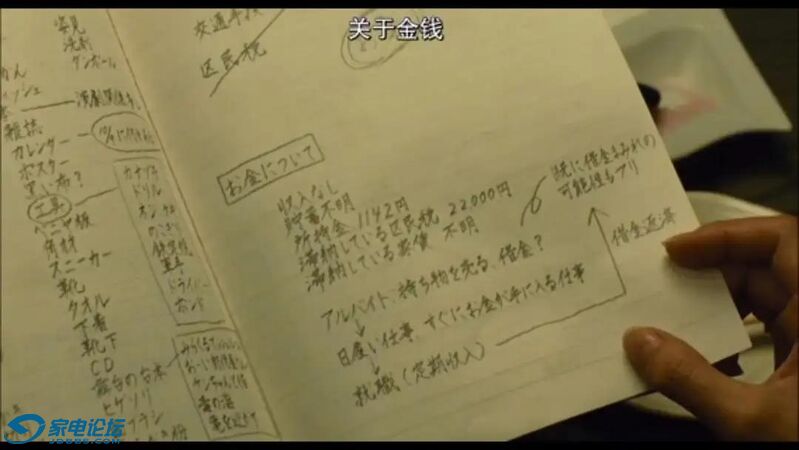 关于金钱
姿見
洗剤
ダンボール
雑誌
カレンダー
ポスター
黒い布?
工具
角材
スニーカー
靴
タオル
下着
靴下
CD
舞台の台本
ヒゲソリ
カナヅチ
ドリル
のこぎり
軍手
ドライバー
ボンド
区民税
お金について
収入なし
貯蓄不明
所持金 1142円
滞納している区民税 22,000円
滞納している家賃 不明
既に借金まみれの
可能性もアリ
アルバイト、持ち物を売る、借金?
日雇い仕事、すぐにお金が手に入る仕事
就職(定期収入)
借金返済
家电论坛